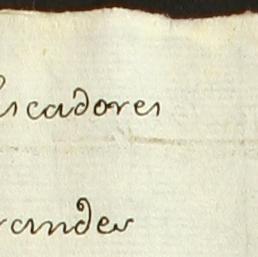 scadores
randes